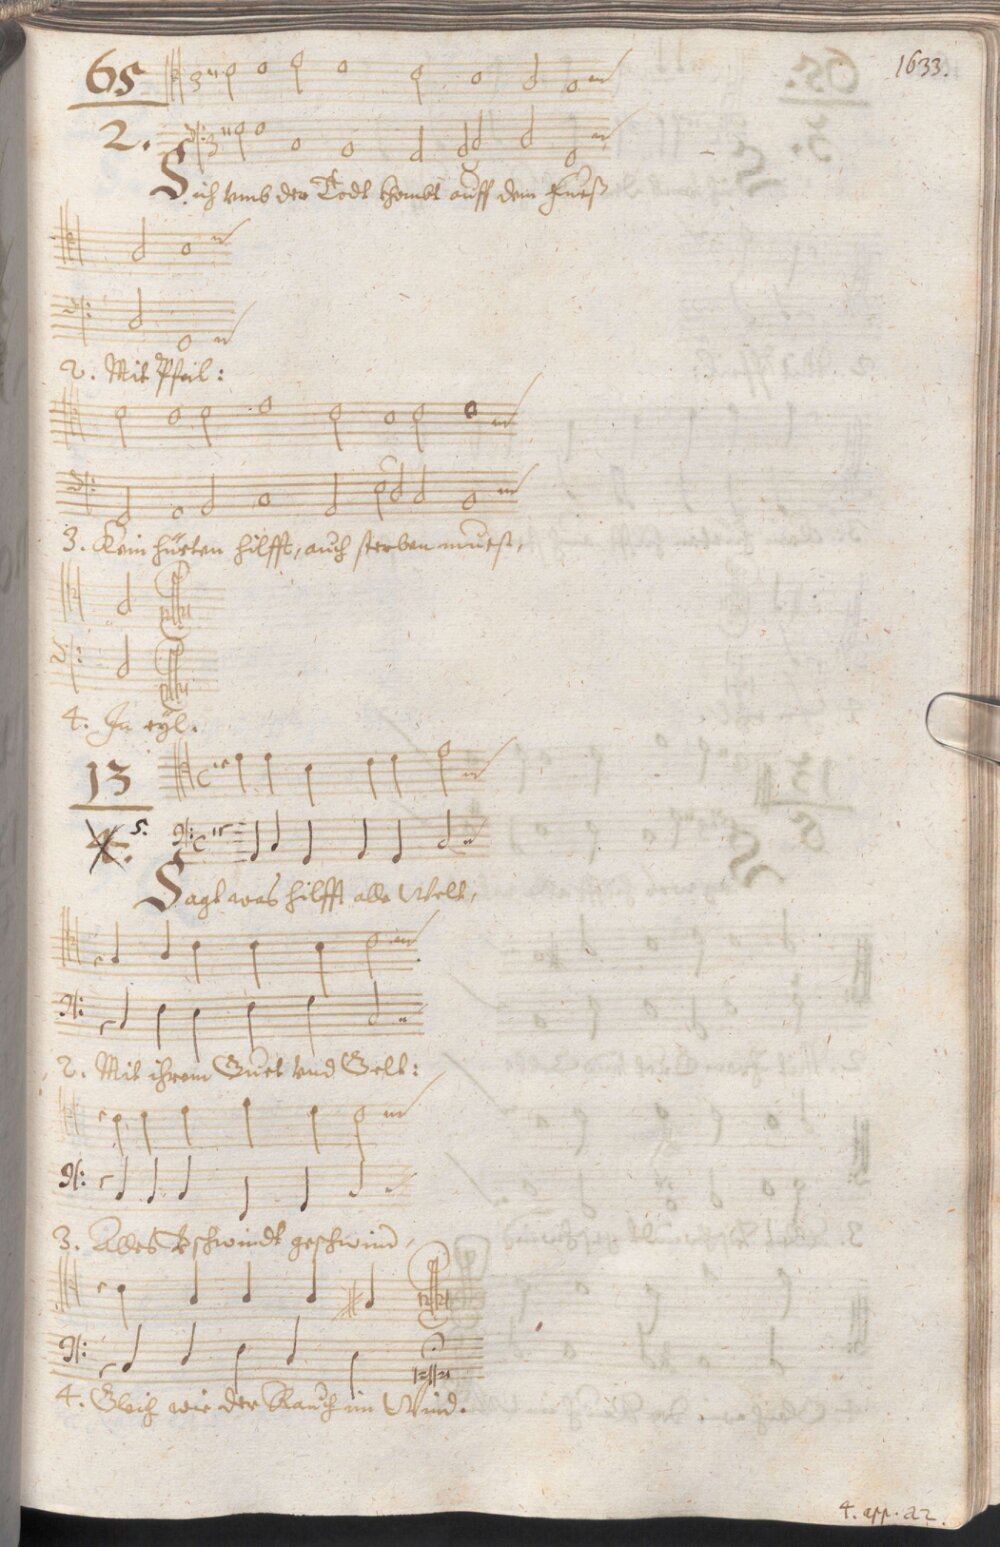 1633.
65
2.
Sich vmb der Todt khombt auff dem Fueß
2. Mit Pfeil:
3. Kein hüeten hilfft, auch sterben muest,
4. In eyl.
13
5.
Sagt was hilfft alle Welt,
2. Mit ihrem Guet vnd Gelt:
3. Alles verschwindt geschwind,
4. Gleich wie der Rauch im Wind.
4. app. a2.